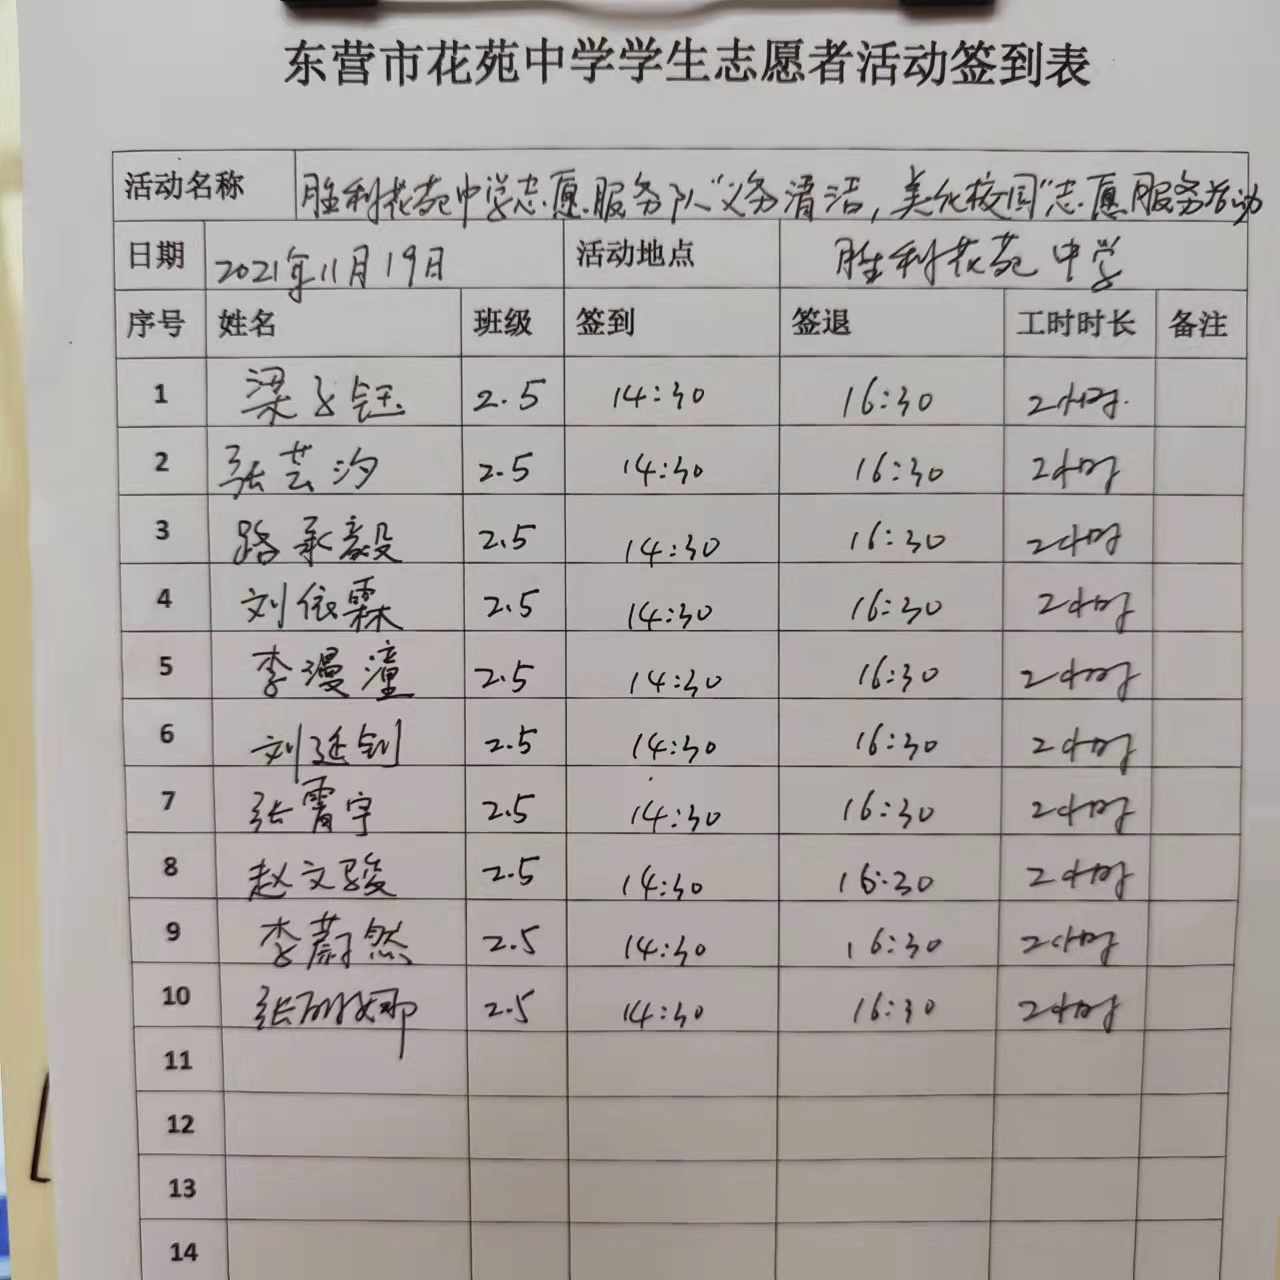 东营市花苑中学学生志愿者活动签到表
活动名称 胜利花苑中学志愿服务队“义务清洁，美化校园”志愿服务活动
日期 2021年11月19日 活动地点 胜利花苑中学
序号 姓名 班级 签到 签退 工时时长 备注
1 梁子钰 2.5 14:30 16:30 2小时.
2 张芸汐 2.5 14:30 16:30 2小时
3 路承毅 2.5 14:30 16:30 2小时
4 刘依霖 2.5 14:30 16:30 2小时
5 李漫潼 2.5 14:30 16:30 2小时
6 刘延钊 2.5 14:30 16:30 2小时
7 张霄宇 2.5 14:30 16:30 2小时
8 赵文骏 2.5 14:30 16:30 2小时
9 李蔚然 2.5 14:30 16:30 2小时
10 2.5 14:30 16:30 2小时
11
12
13
14